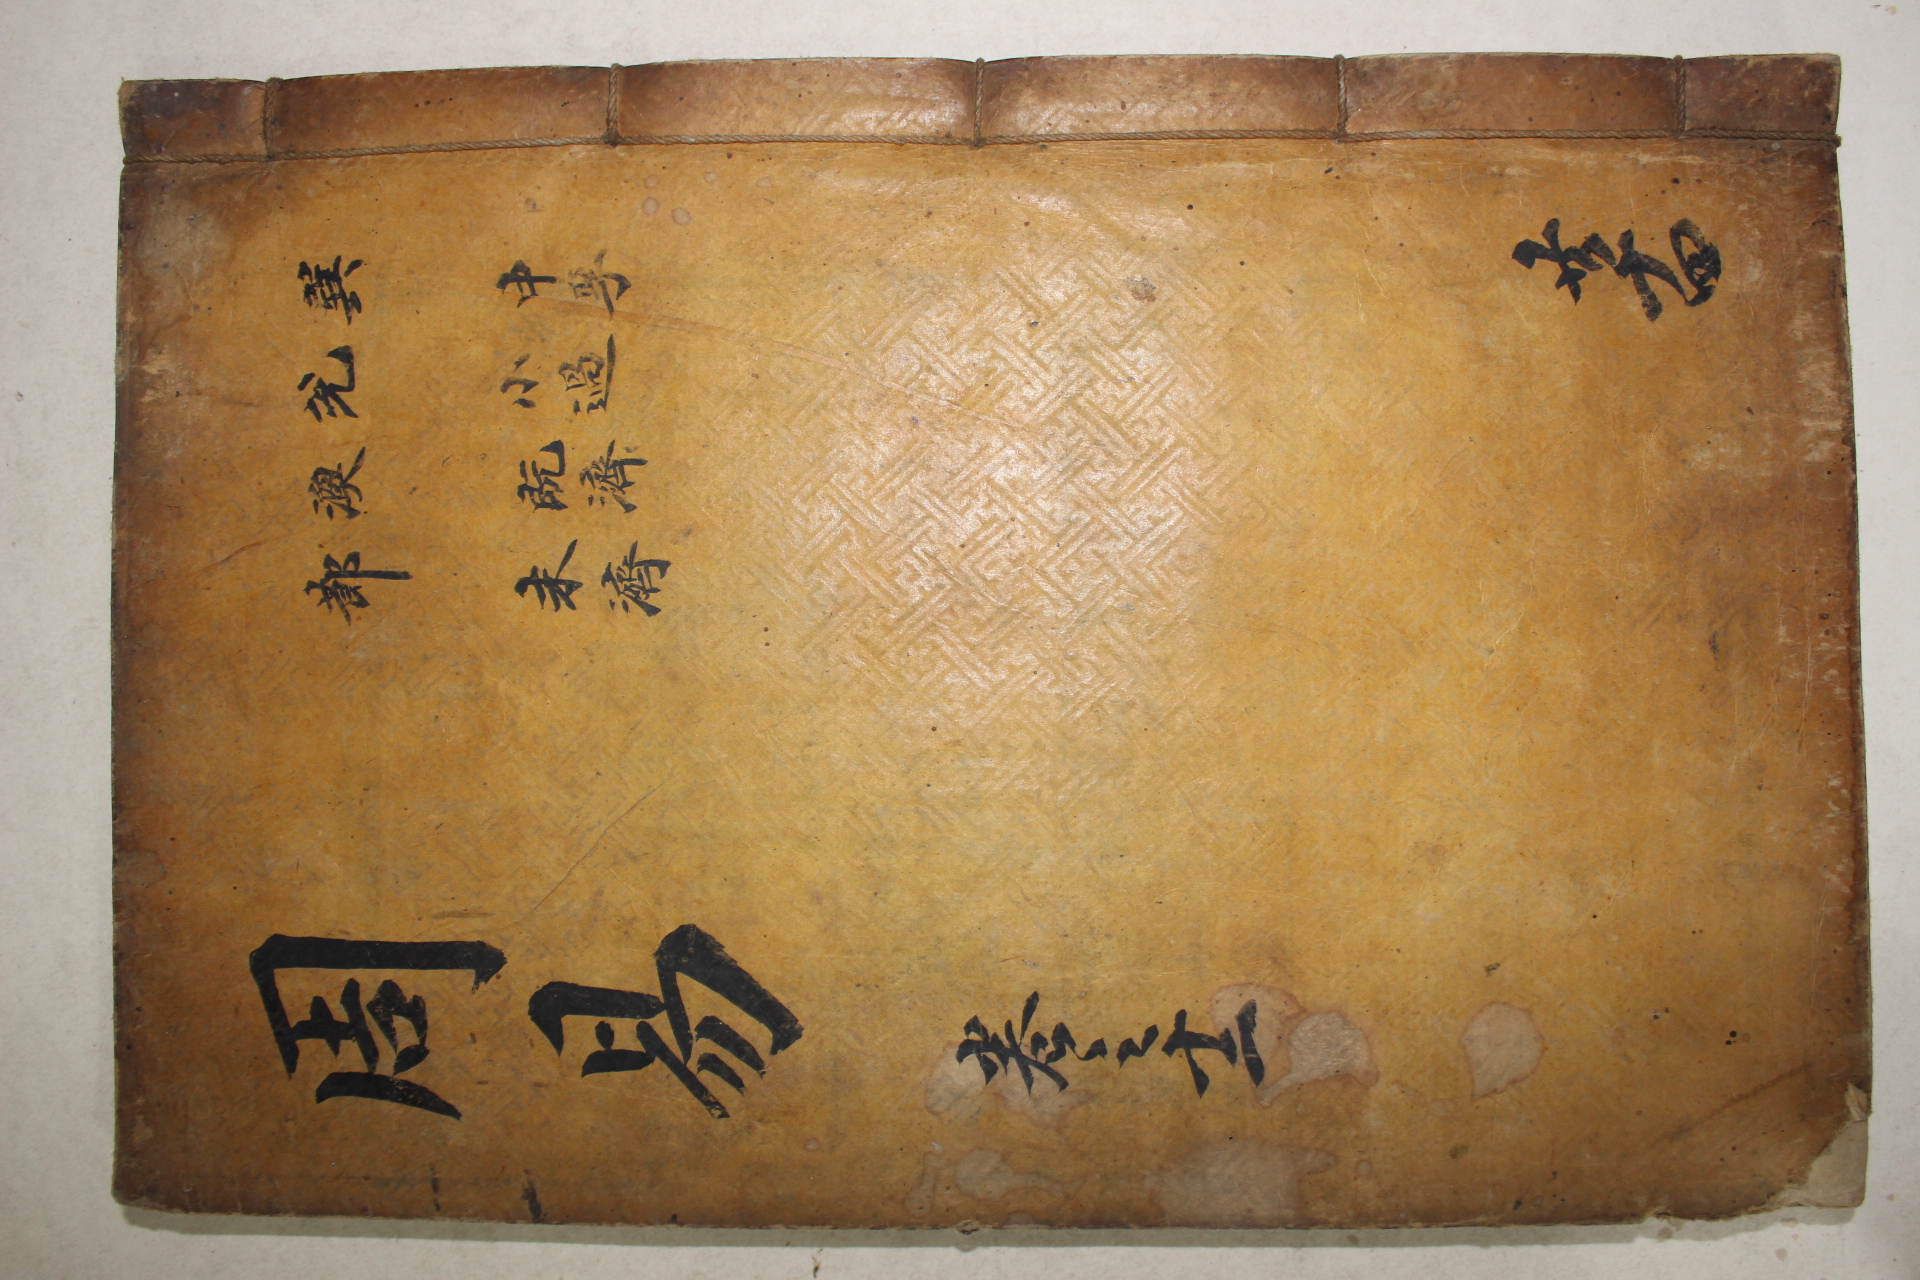 共十四
巽 兌 渙 節
中孚 小過 旣濟 未濟
周易 卷之十二